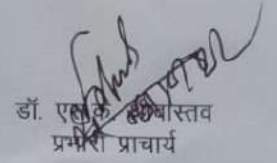 डॉ. एस.के. श्रीवास्तव
प्रभारी प्राचार्य